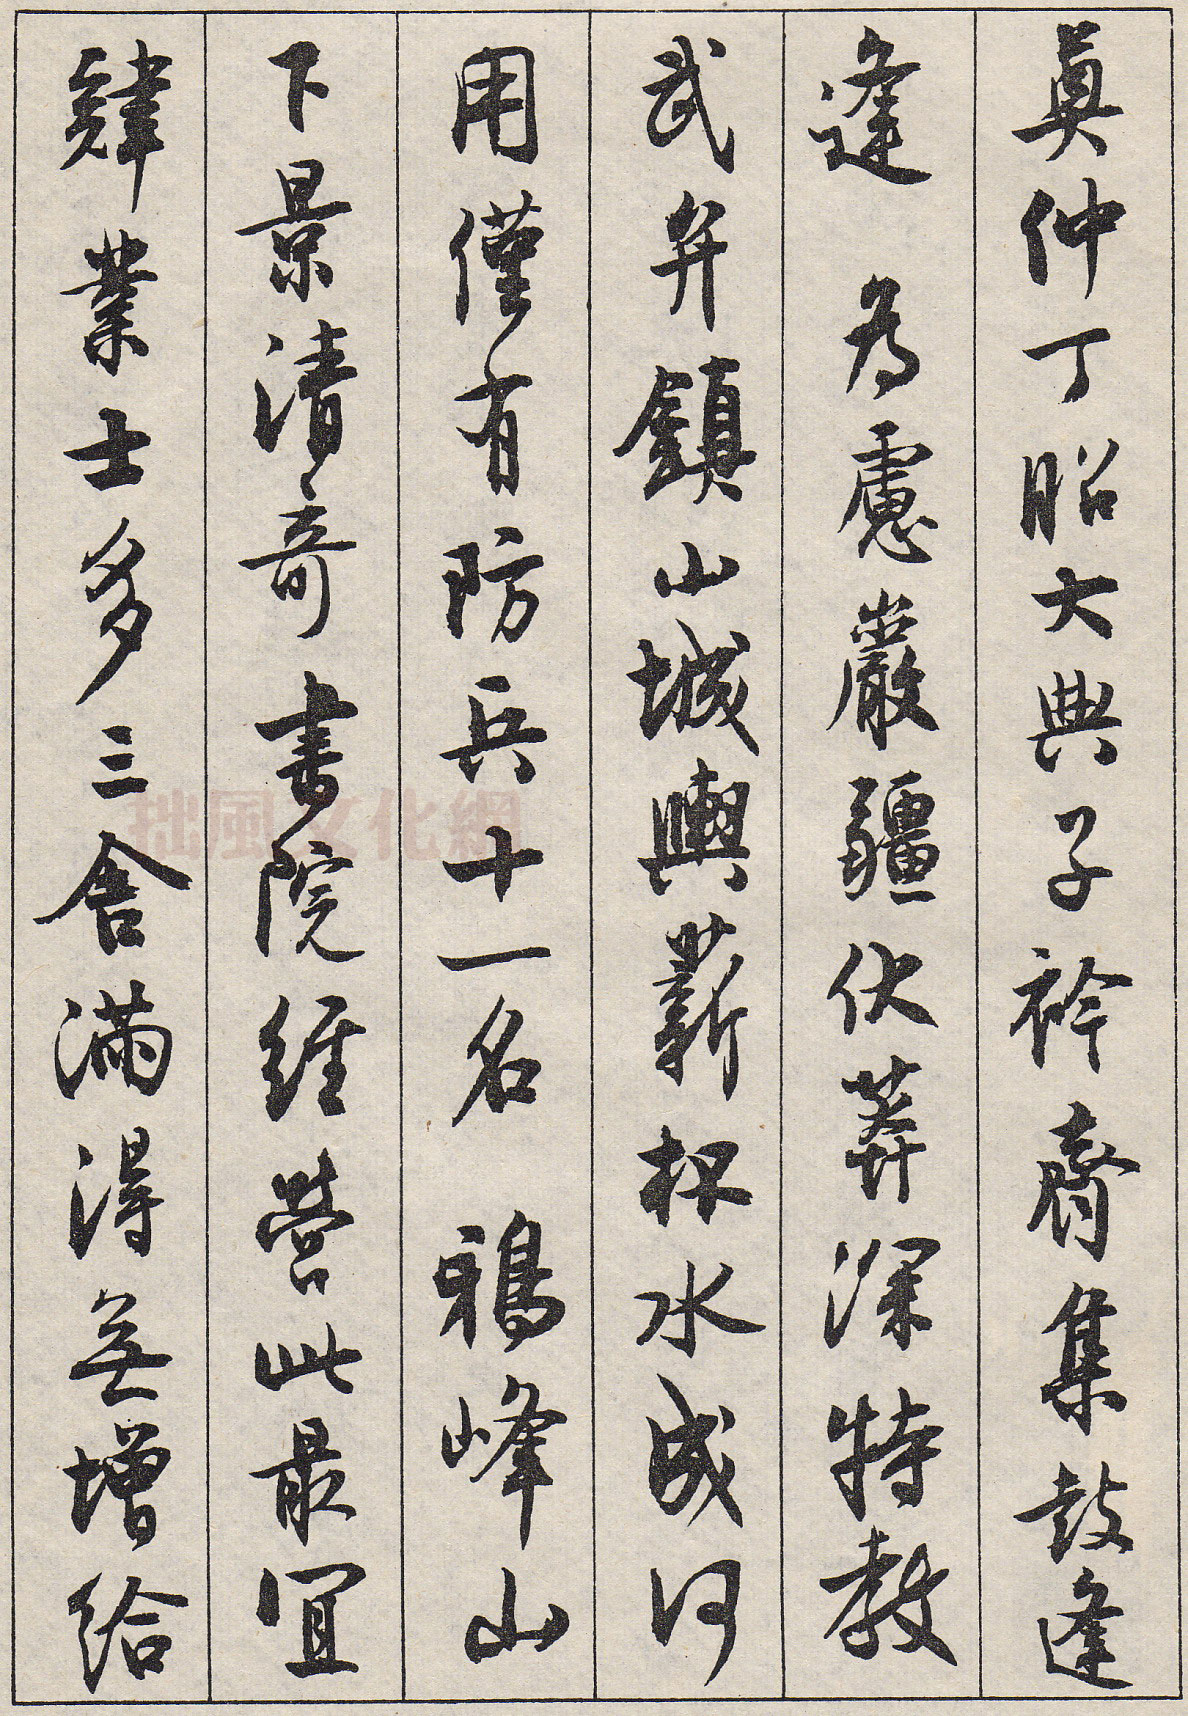 真仲丁昭大典子衿齊集鼓逢
逢　為慮巖疆伏莽深特教
武弁鎮山城輿薪杯水成何
用僅有防兵十一名　鴉峰山
下景清奇書院經營此最宜
肄業士多三舍滿得無增給
拙風文化網